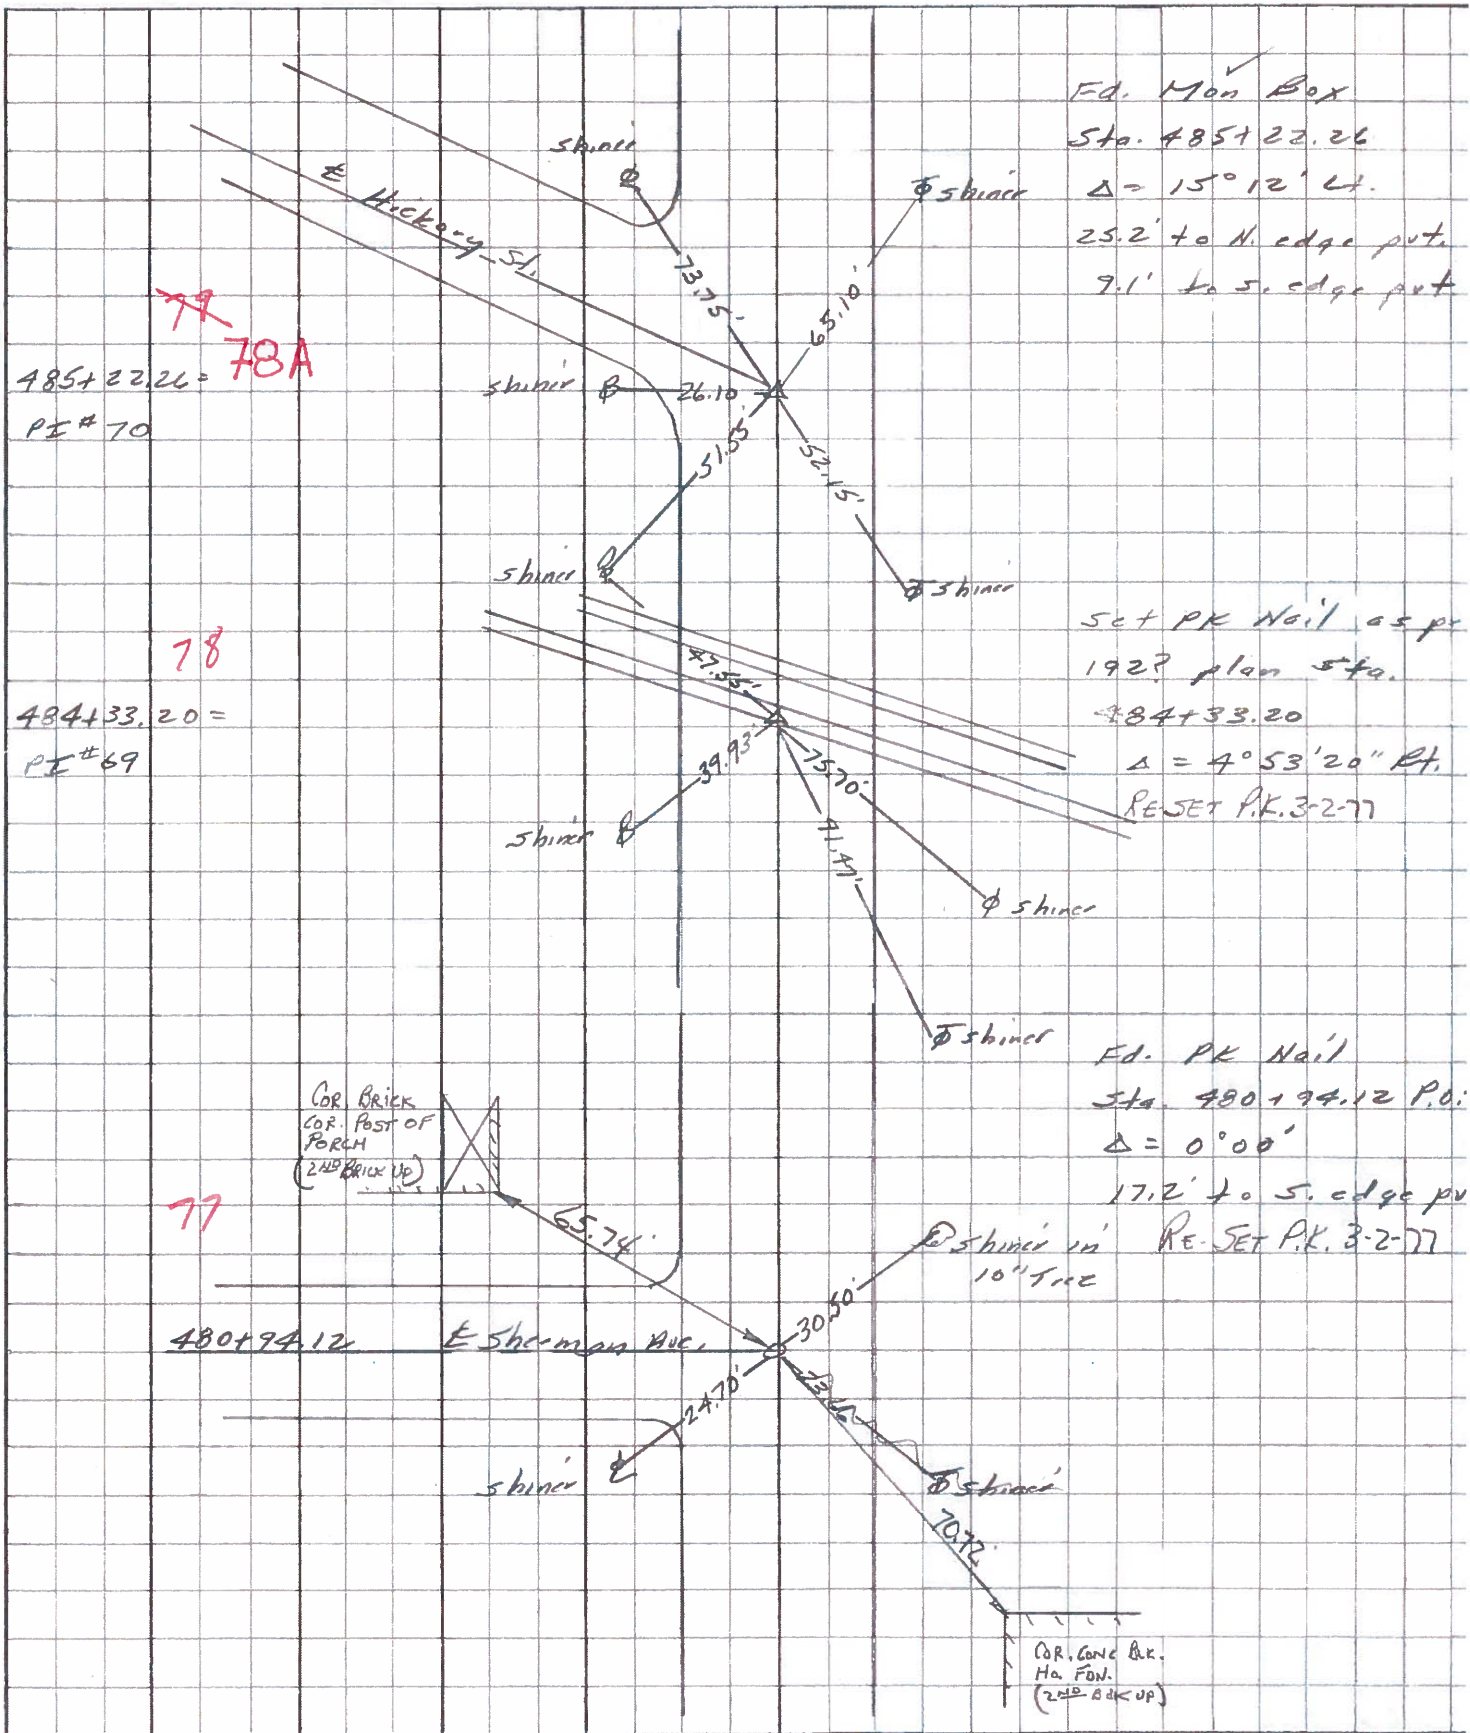 Fd. Mon Box
Sta. 485+22.26
Δ = 15°12' Lt.
25.2' to N. edge pvt.
9.1' to S. edge pvt
shiner
shiner
℄ Hickory St.
73.75'
65.10'
78A
485+22.26 =
PI # 70
shiner
26.10
51.55
52.15'
shiner
shiner
Set PK Nail as pe
192? plan sta.
484+33.20
Δ = 4°53'20" Rt.
RE-SET P.K. 3-2-77
78
484+33.20 =
PI #69
47.55'
39.93'
75.70'
41.47'
shiner
shiner
shiner
Fd. PK Nail
Sta. 480+94.12 P.O.
Δ = 0°00'
17.2' to S. edge pv
RE-SET P.K. 3-2-77
COR. BRICK
COR. POST OF
PORCH
(2ND BRICK UP)
77
65.74'
shiner in
10" Tree
30.50'
480+94.12 ℄ Sherman Ave.
24.70'
shiner
shiner
70.72'
COR. CONC BLK.
HO. FDN.
(2ND BLK UP)